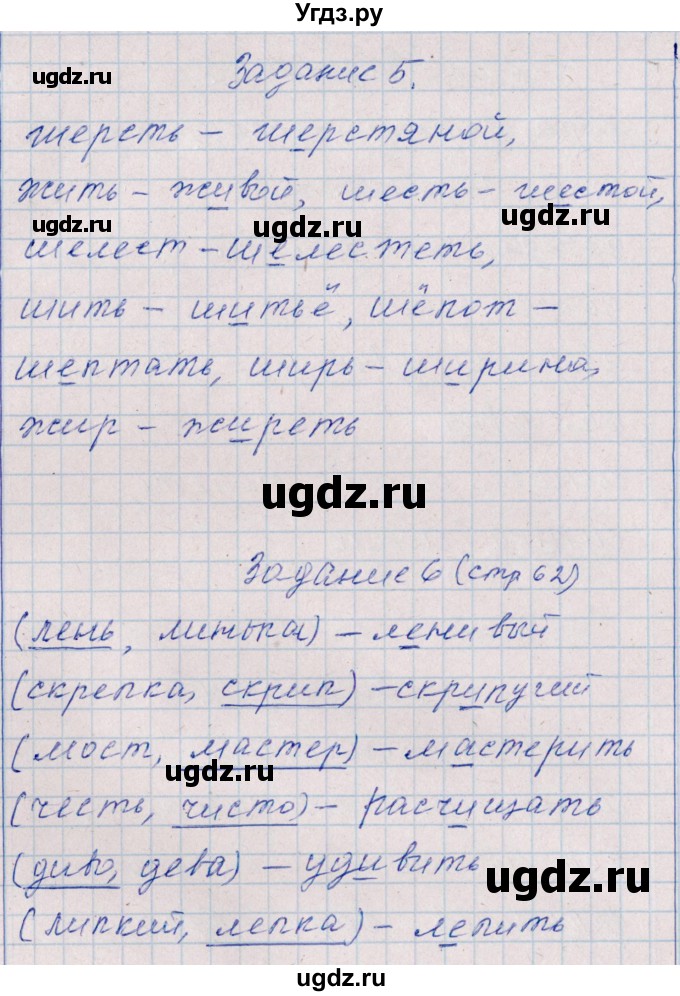 Угдз.ру
Задание 5.
ugdz.ru
шерсть – шерстяной,
ugdz.ru
жить – живой, шесть – шестой,
ugdz.ru
ugdz.ru
шелест – шелестеть,
шить – шитьё, шёпот –
шептать, ширь – ширина,
жир – жиреть
ugdz.ru
Задание 6 (стр 62)
(лень, линька) – ленивый
(скрепка, скрип) – скрипучий
(мост, мастер) – мастерить
ugdz.ru
(честь, чисто) – расчищать
(диво, дева) – удивить
ugdz.ru
(липкий, лепка) – лепить
ugdz.ru